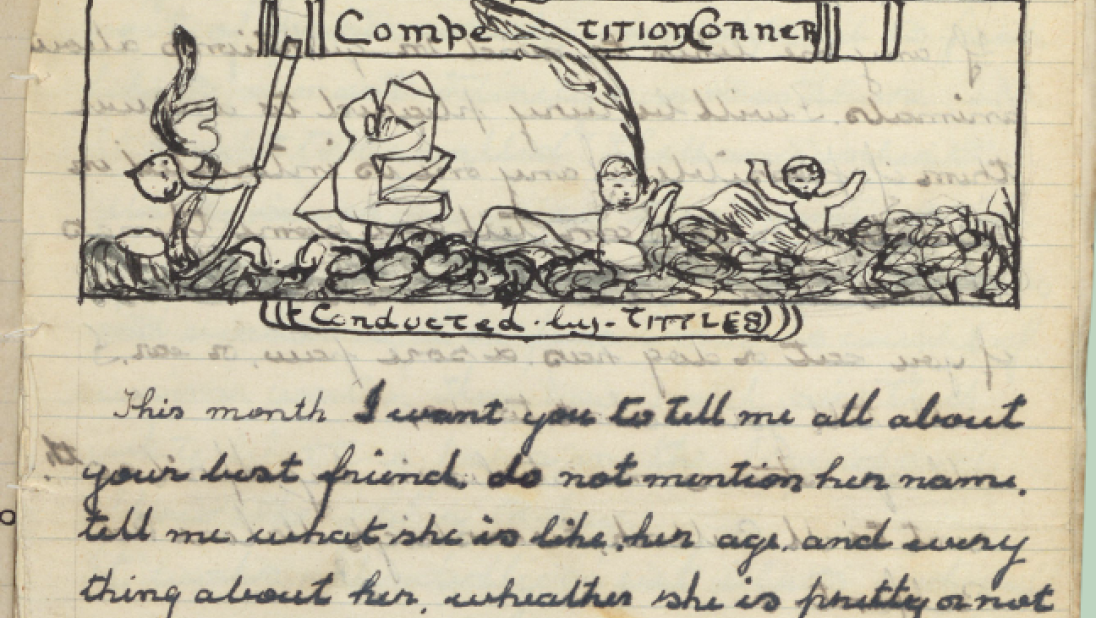 CompetITION CORNER
Conducted-by-TITTLES
This month I want you to tell me all about
your best friend, do not mention her name.
tell me what she is like, her age, and every
thing about her, wheather she is pretty or not